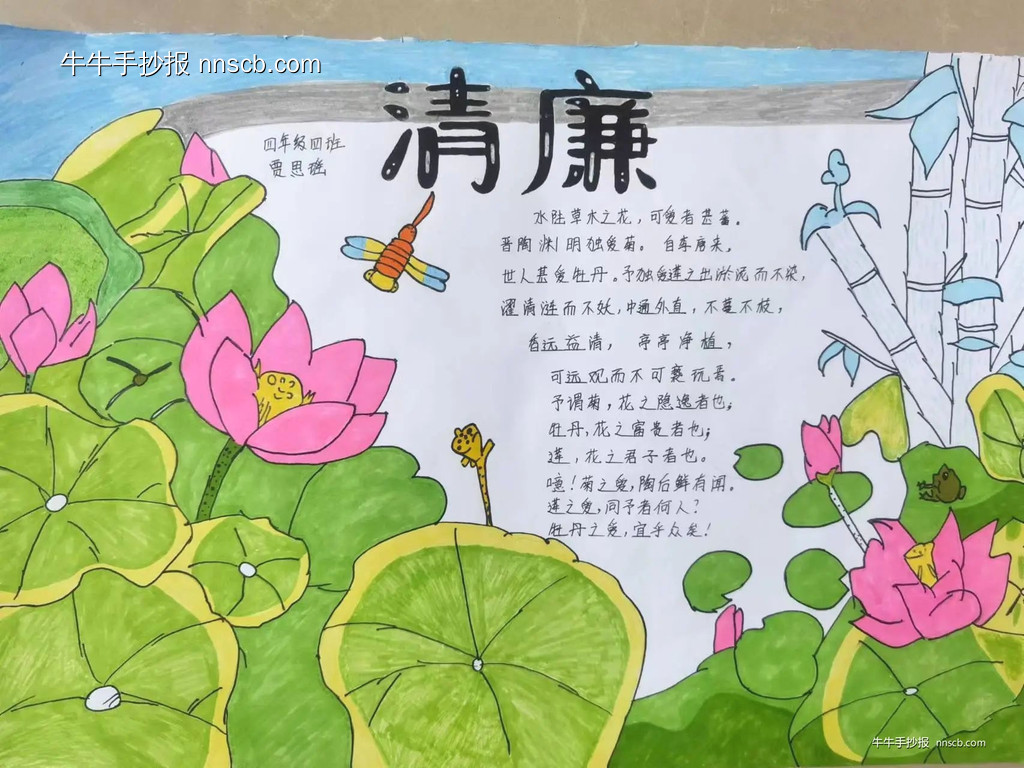 牛牛手抄报 nnscb.com
清廉
四年级四班
贾思班
水陆草木之花，可爱者甚蕃。
晋陶渊明独爱菊。自李唐来，
世人甚爱牡丹。予独爱莲之出淤泥而不染，
濯清涟而不妖，中通外直，不蔓不枝，
香远益清，亭亭净植，
可远观而不可亵玩焉。
予谓菊，花之隐逸者也；
牡丹，花之富贵者也；
莲，花之君子者也。
噫！菊之爱，陶后鲜有闻。
莲之爱，同予者何人？
牡丹之爱，宜乎众矣！
牛牛手抄报 nnscb.com